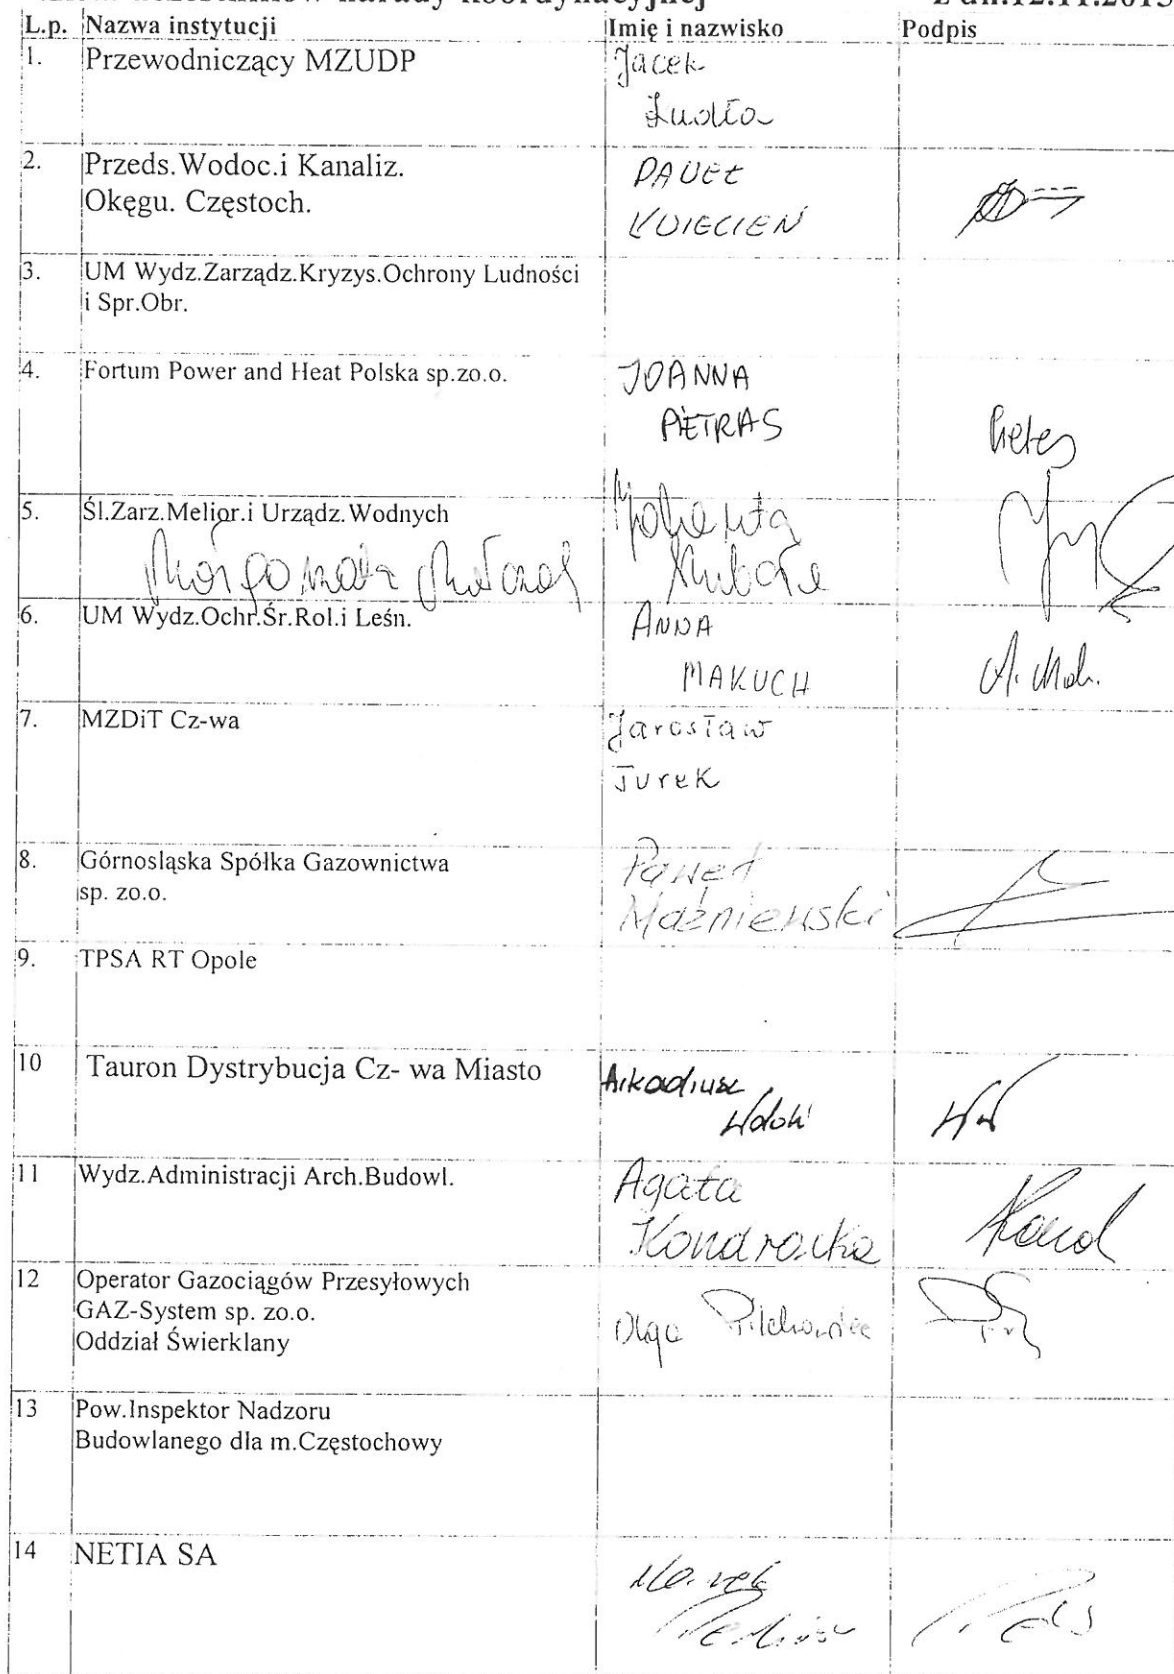 narady koordynacyjnej z dn.12.11.2013
L.p. Nazwa instytucji Imię i nazwisko Podpis
1. Przewodniczący MZUDP Jacek
2. Przeds.Wodoc.i Kanaliz. PAWEŁ
Okęgu. Częstoch. KWIECIEŃ
3. UM Wydz.Zarządz.Kryzys.Ochrony Ludności
i Spr.Obr.
4. Fortum Power and Heat Polska sp.zo.o. JOANNA
PIETRAS
5. Śl.Zarz.Melior.i Urządz.Wodnych Jolanta
Małgorzata
6. UM Wydz.Ochr.Śr.Rol.i Leśn. ANNA
MAKUCH A. Mak.
7. MZDiT Cz-wa Jarosław
Jurek
8. Górnosląska Spółka Gazownictwa Paweł
sp. zo.o. Maźniewski
9. TPSA RT Opole
10 Tauron Dystrybucja Cz- wa Miasto Arkadiusz
11 Wydz.Administracji Arch.Budowl. Agata
Kondracka
12 Operator Gazociągów Przesyłowych
GAZ-System sp. zo.o. Olga
Oddział Świerklany
13 Pow.Inspektor Nadzoru
Budowlanego dla m.Częstochowy
14 NETIA SA Marek